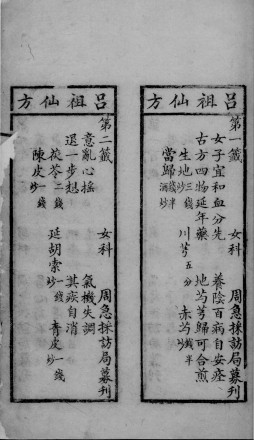 呂祖仙方
第一籤 女科 周急採訪局募刊
女子宜和血分先 養陰百病自安痊
古方四物延年藥 地芍芎歸可合煎
生地三錢炒 川芎五分 赤芍錢半炒
當歸錢半酒炒
呂祖仙方
第二籤 女科 周急採訪局募刊
意亂心搖 氣機失調
退一步想 其疾自消
茯苓二錢 延胡索一錢炒 青皮一錢炒
陳皮一錢炒